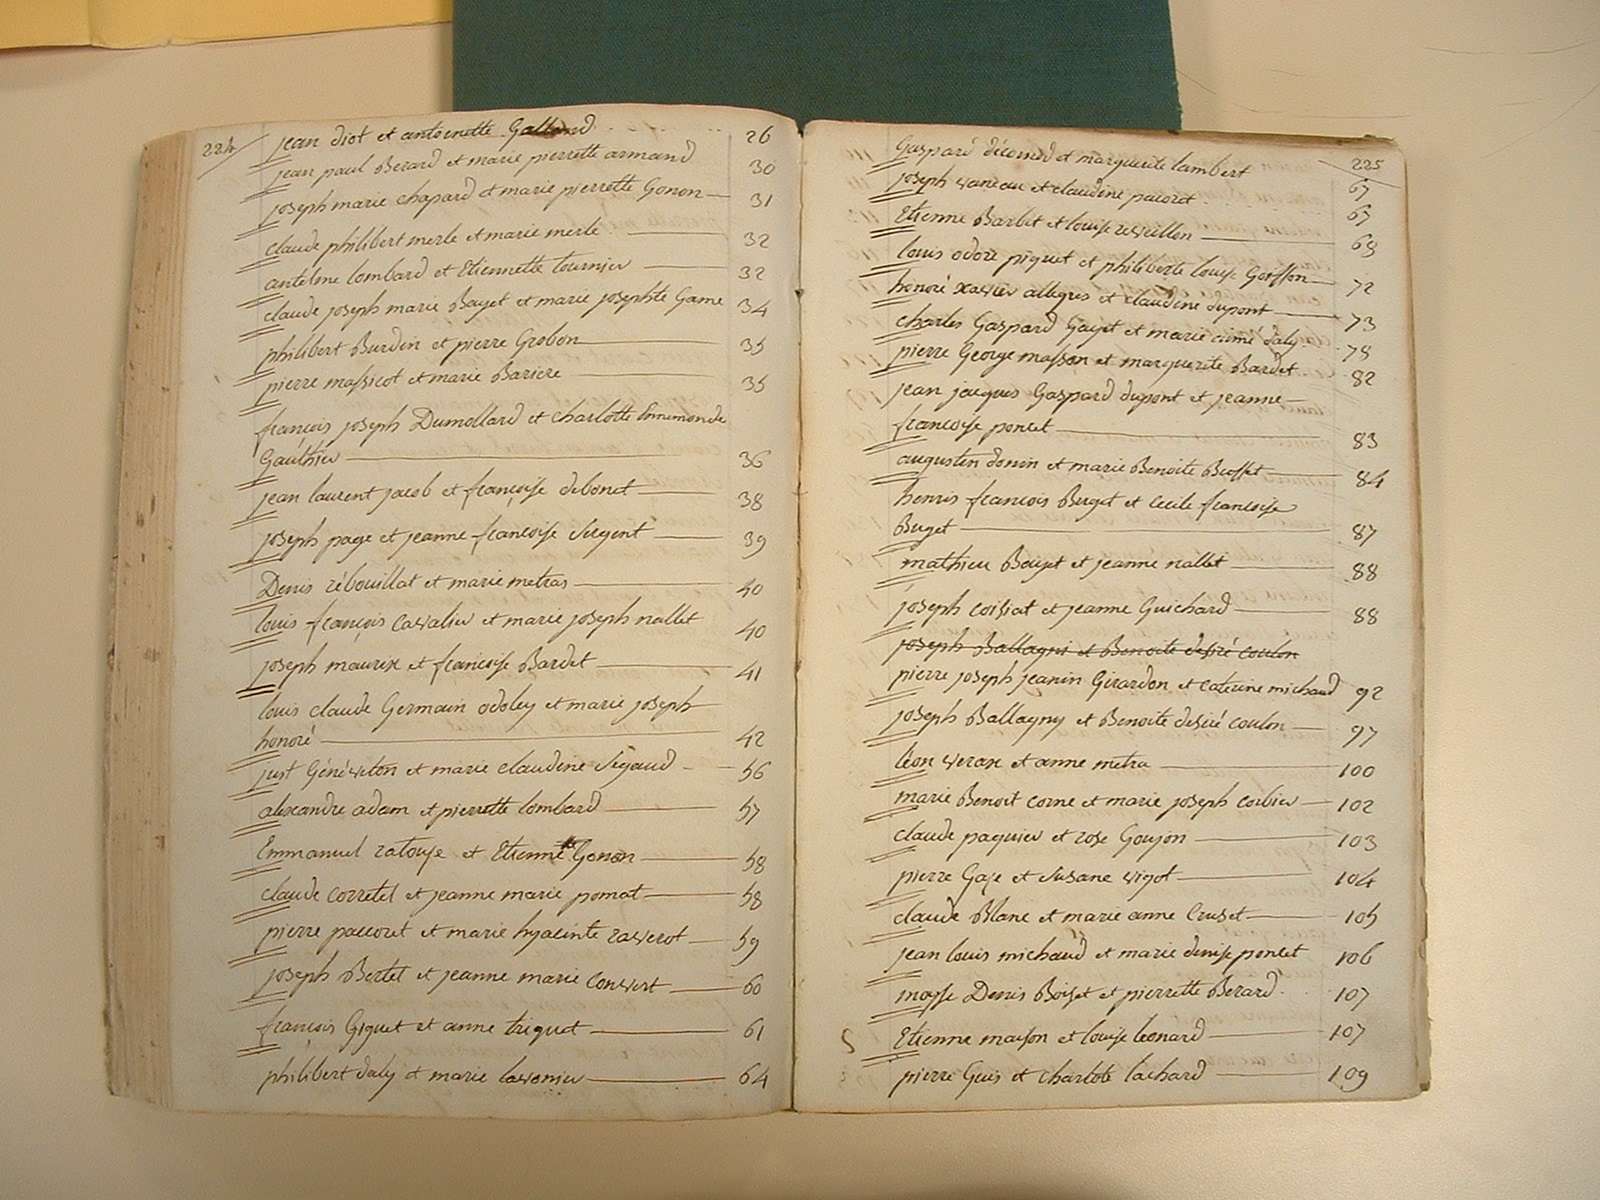 224
jean diot et antoinette Galland 26
jean paul Berard et marie pierrette armand 30
joseph marie chapard et marie pierrette Gonon 31
claude philibert merle et marie merle 32
antelme lombard et Etiennette tournier 32
claude joseph marie Bayet et marie josephte Game 34
philibert Burdin et pierre Grobon 35
pierre massicot et marie Bariere 35
françois joseph Dumollard et charlotte
Gauthier 36
jean laurent jacob et françoise debonet 38
joseph page et jeanne françoise Sergent 39
Denis rébouillat et marie metras 40
louis françois Cavalier et marie joseph nallet 40
joseph maurix et françoise Bardet 41
louis claude Germain odoley et marie joseph
honoré 42
just Généveton et marie claudine Sigaud 56
alexandre adam et pierrette lombard 57
Emmanuel ratouse et Etiennette Gonon 58
claude corretel et jeanne marie pomat 58
pierre paccoret et marie hyacinte raverot 59
joseph Bertet et jeanne marie Convert 60
françois Giguet et anne triquet 61
philibert daly et marie lavenier 64
225
Gaspard et marguerite lambert 67
joseph vaneau et claudine pacoret 67
Etienne Barbet et louise revillon 68
louis odore piquet et philiberte louise Gorsson 72
honoré xavier allegres et claudine dupont 73
charles Gaspard Gayet et marie aimé daly 78
pierre George masson et marguerite Bardet 82
jean jacques Gaspard dupont et jeanne
françoise poncet 83
augustin donin et marie Benoite Brosset 84
henris françois Buget et cecile françoise
Buget 87
mathieu Bouget et jeanne nallet 88
joseph coisiat et jeanne Guichard 88
joseph Ballagni et Benoite desiré coulon
pierre joseph jeanin Girardon et caterine michaud 92
joseph Ballagny et Benoite desiré coulon 97
léon verax et anne metra 100
marie Benoit corne et marie joseph corbier 102
claude paquier et rose Goujon 103
pierre Gase et Susane vigot 104
claude Blanc et marie anne Cruset 105
jean louis michaud et marie denise poncet 106
moyse Denis Boiset et pierrette Berard 107
Etienne maison et louise leonard 107
pierre Guis et charlote lachard 109